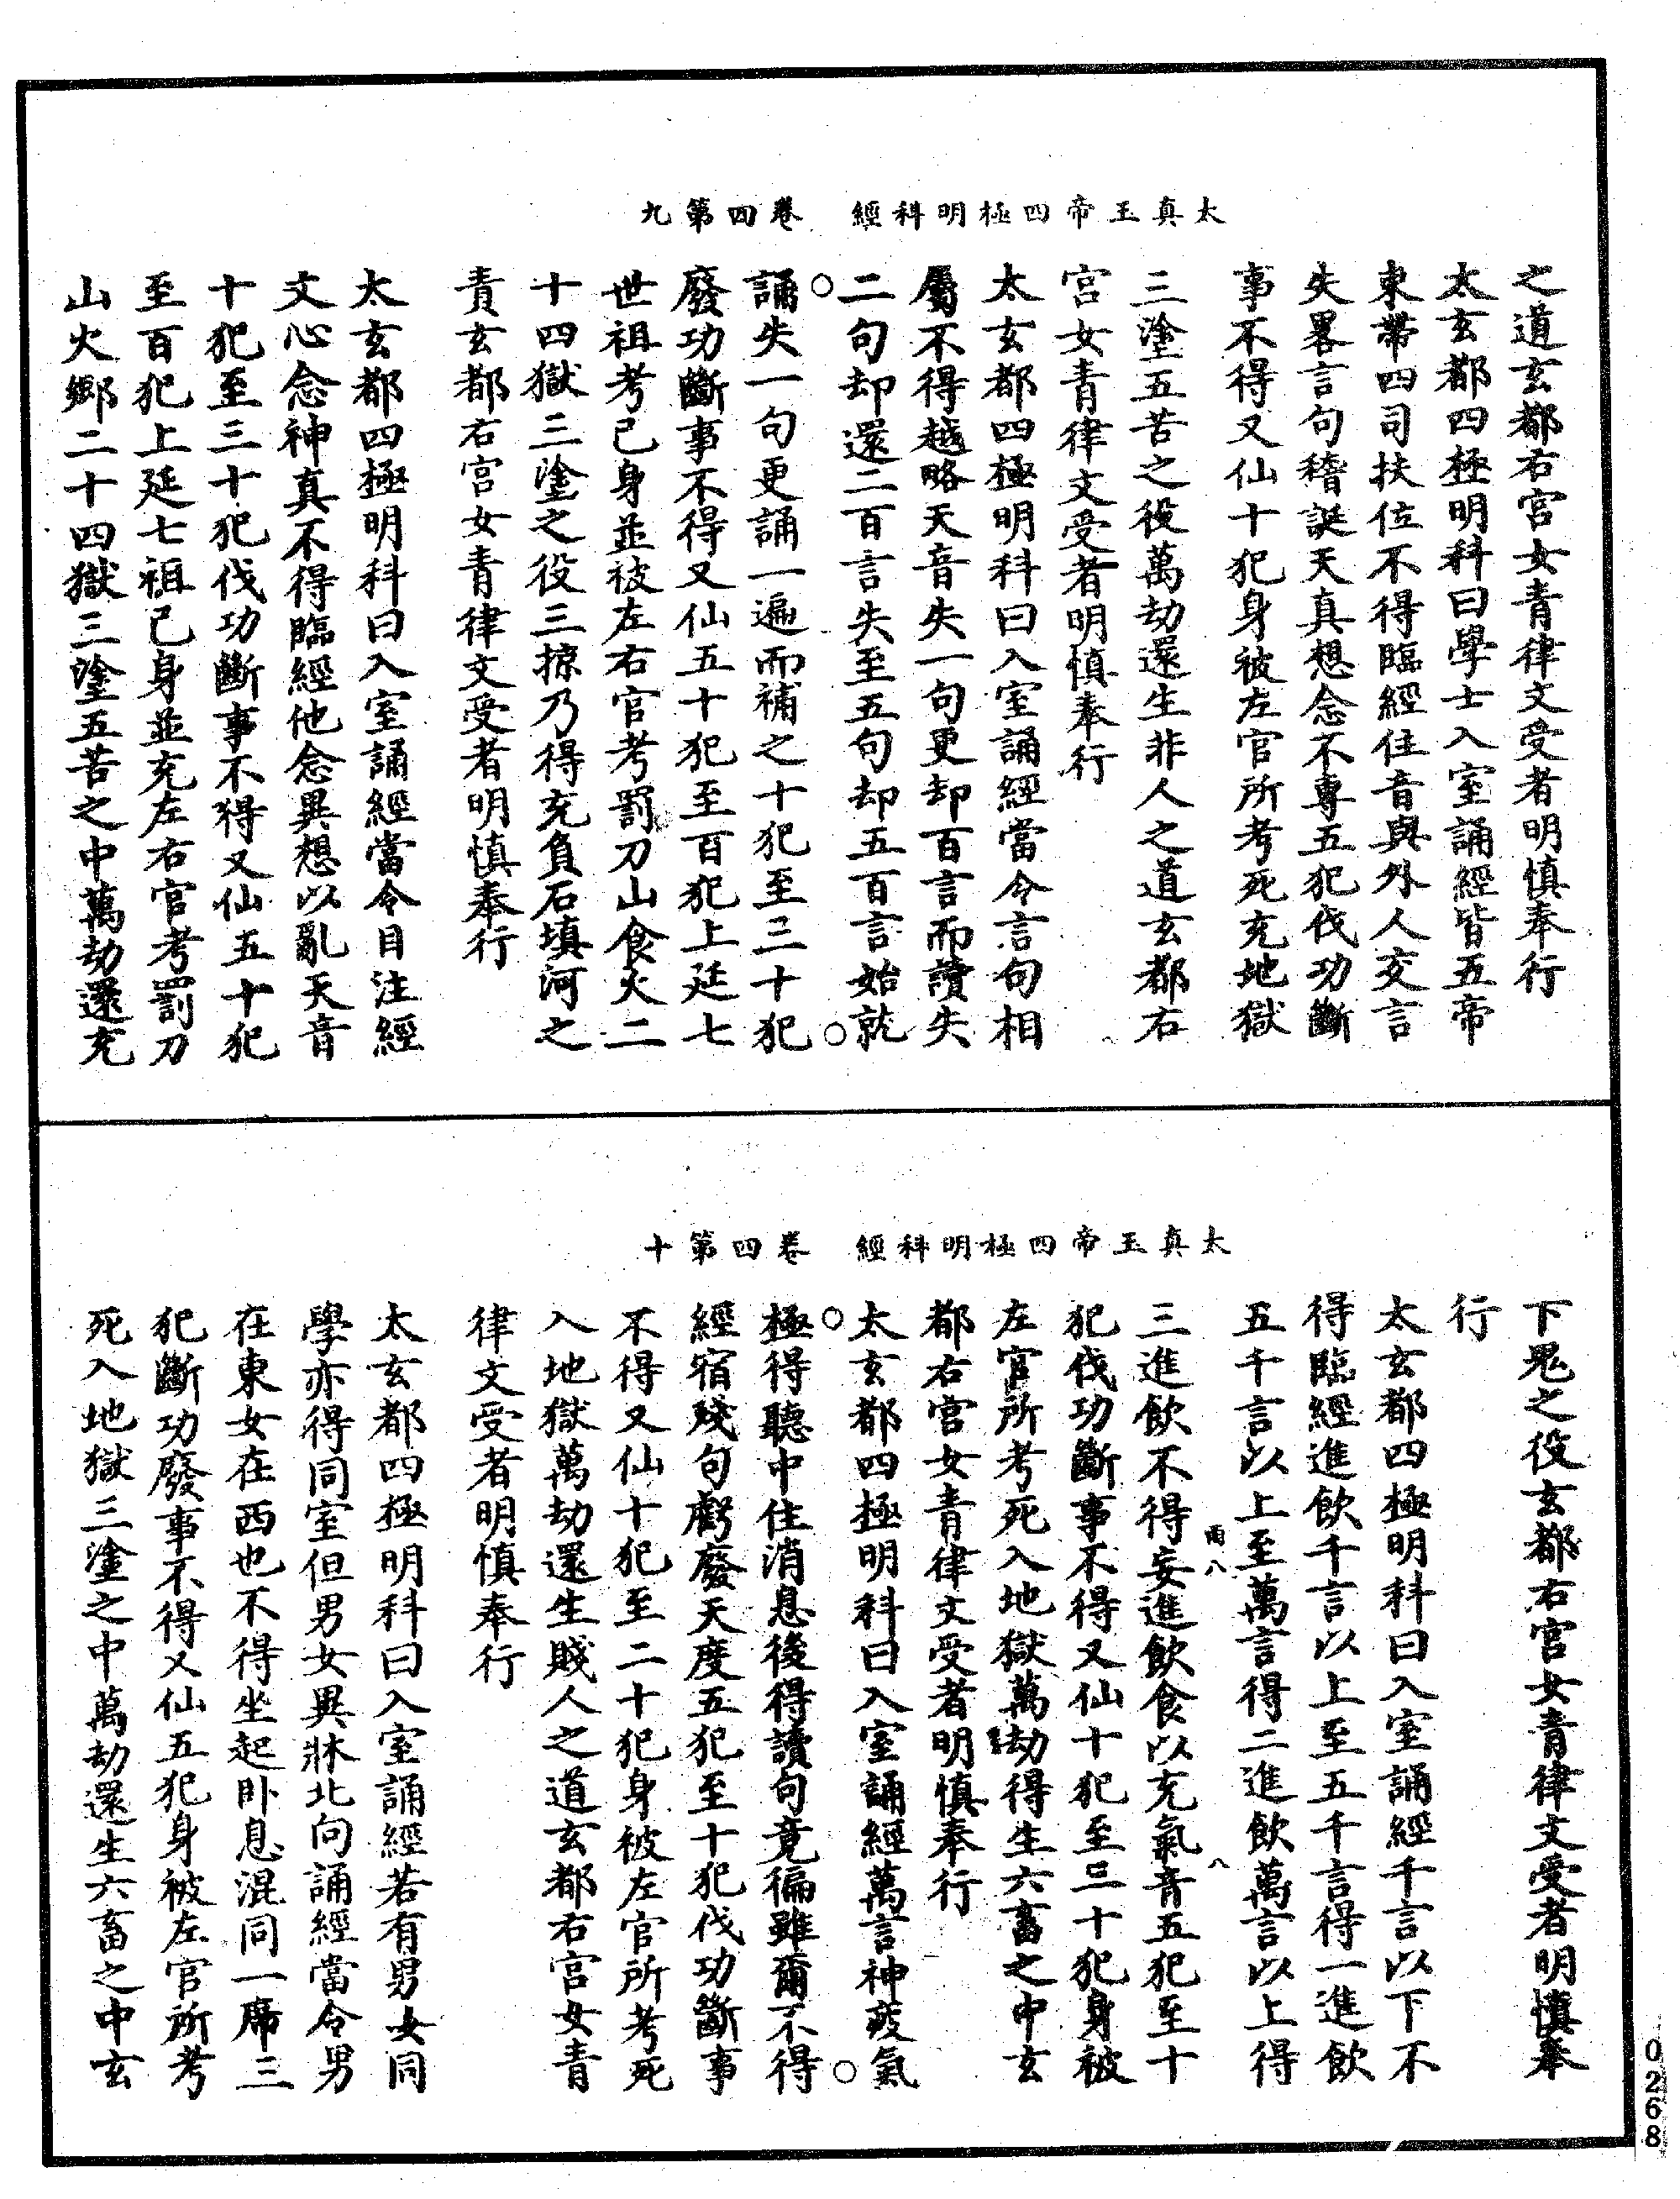 太真玉帝四極明科經　卷四第九
之道玄都右宫女青律文受者明慎奉行
太玄都四極明科曰學士入室誦經皆五帝
東帶四司扶位不得臨經住音與外人交言
失畧言句稽誕天真想念不專五犯伐功斷
事不得又仙十犯身被左官所考死充地獄
三塗五苦之役萬劫還生非人之道玄都右
宫女青律文受者明慎奉行
太玄都四極明科曰入室誦經當令言句相
屬不得越略天音失一句更却百言而讀失
二句却還二百言失至五句却五百言始就
誦失一句更誦一遍而補之十犯至三十犯
廢功斷事不得又仙五十犯至百犯上延七
世祖考己身並被左右官考罰刀山食火二
十四獄三塗之役三掠乃得充負石填河之
責玄都右宫女青律文受者明慎奉行
太玄都四極明科曰入室誦經當令目注經
文心念神真不得臨經他念異想以亂天音
十犯至三十犯伐功斷事不得又仙五十犯
至百犯上延七祖己身並充左右官考罰刀
山火鄉二十四獄三塗五苦之中萬劫還充
太真玉帝四極明科經　卷四第十
下鬼之役玄都右宫女青律文受者明慎奉
行
太玄都四極明科曰入室誦經千言以下不
得臨經進飲千言以上至五千言得一進飲
五千言以上至萬言得二進飲萬言以上得
雨八　八
三進飲不得妄進飲食以充氣音五犯至十
犯伐功斷事不得又仙十犯至三十犯身被
左官所考死入地獄萬劫得生六畜之中玄
都右宫女青律文受者明慎奉行
太玄都四極明科曰入室誦經萬言神疲氣
極得聽中住消息後得讀句竟徧雖爾不得
經宿殘句虧廢天度五犯至十犯伐功斷事
不得又仙十犯至二十犯身被左官所考死
入地獄萬劫還生賤人之道玄都右宫女青
律文受者明慎奉行
太玄都四極明科曰入室誦經若有男女同
學亦得同室但男女異牀北向誦經當令男
在東女在西也不得坐起卧息混同一席三
犯斷功廢事不得又仙五犯身被左官所考
死入地獄三塗之中萬劫還生六畜之中玄
0268